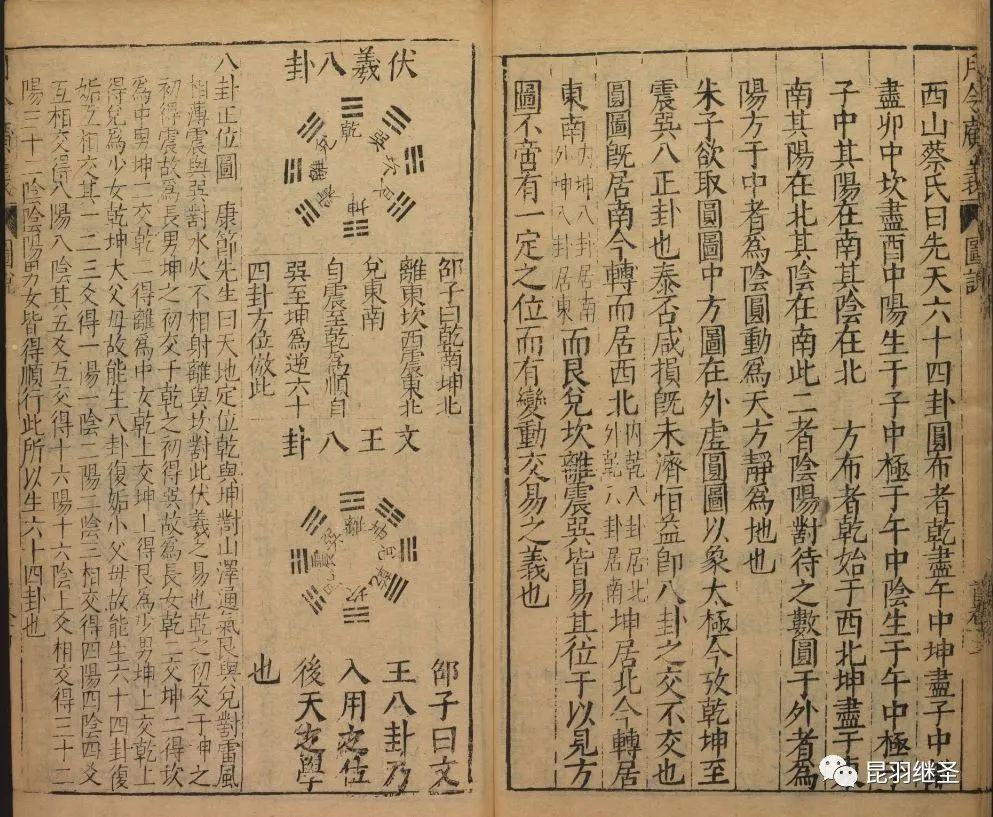 月令廣義 圖說
西山蔡氏曰先天六十四卦圓布者乾盡午中坤盡子中
盡卯中坎盡酉中陽生于子中極于午中陰生于午中極
子中其陽在南其陰在北 方布者乾始于西北坤盡于東
南其陽在北其陰在南此二者陰陽對待之數圓于外者為
陽方于中者為陰圓動為天方靜為地也
朱子欲取圓圖中方圖在外虛圓圖以象太極今攷乾坤至
震巽八正卦也泰否咸損旣未濟恒益卽八卦之交不交也
圓圖旣居南今轉而居西北內乾八卦居北外乾八卦居南坤居北今轉居
東南內坤八卦居南外坤八卦居東而艮兌坎離震巽皆易其位于以見方
圖不啻有一定之位而有變動交易之義也
伏羲八卦
乾
巽
坎
艮
坤
震
離
兌
邵子曰乾南坤北
離東坎西震東北
兌東南
自震至乾為順自
巽至坤為逆六十
四卦方位倣此
文王八卦
離
坤
兌
乾
坎
艮
震
巽
邵子曰文
王八卦乃
入用之位
後天之學
也
八卦正位圖 康節先生曰天地定位乾與坤對山澤通氣艮與兌對雷風
相薄震與巽對水火不相射離與坎對此伏羲之易也乾之初交于坤之
初得震故為長男坤之初交于乾之初得巽故為長女乾二交坤二得坎
為中男坤二交乾二得離為中女乾上交坤上得艮為少男坤上交乾上
得兌為少女乾坤大父母故能生八卦復姤小父母故能生六十四卦復
姤互相交其一二三爻得一陽一陰二陽二陰三相交得四陽四陰四爻
互相交得八陽八陰其五爻互交得十六陽十六陰上交相交得三十二
陽三十二陰陰陽男女皆得順行此所以生六十四卦也
昆羽继圣